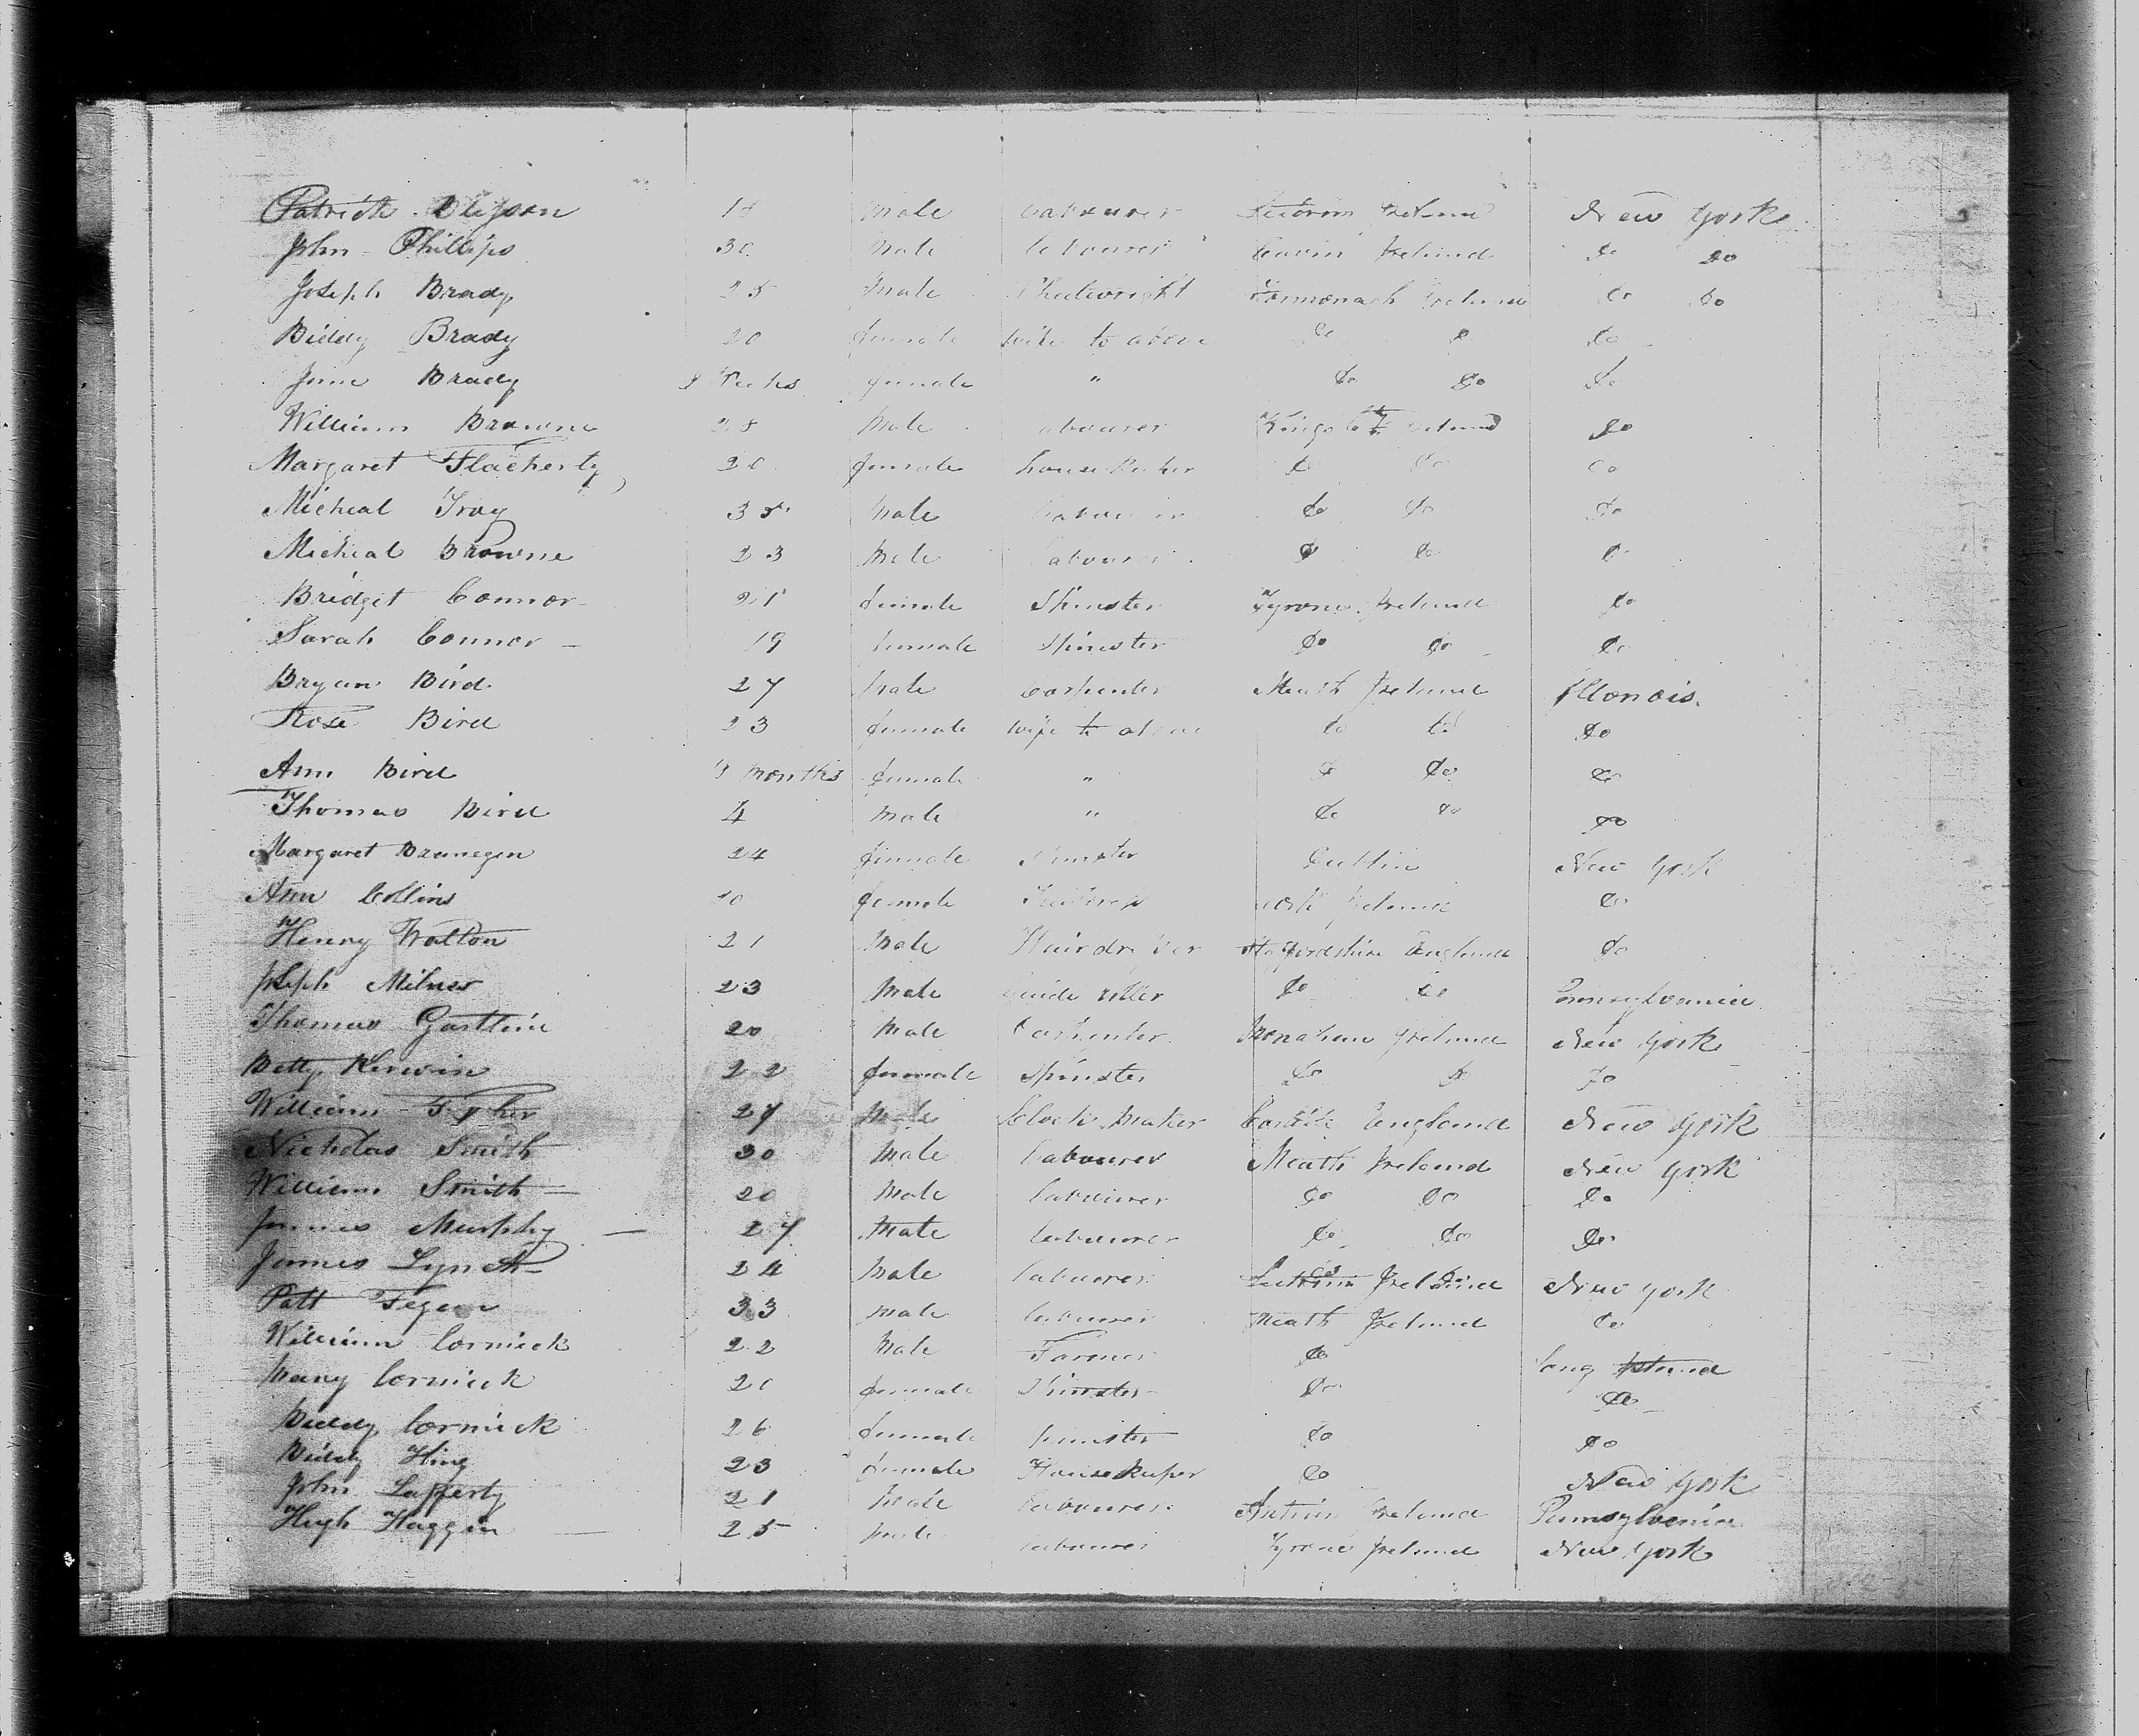 Patrick 18 male Labourer Leitrim Ireland New York
John Phillips 30 male Labourer Cavin Ireland Do Do
Joseph Brady 25 male Wheelwright Farmonagh Ireland Do Do
Biddy Brady 20 female wife to above Do Do Do
Jane Brady 9 Weeks female " Do Do Do
William Browne 28 male Labourer Kings Ct Ireland Do
Margaret Flacherty 20 female house Keeker Do Do Do
Micheal Troy 35 male Labourer Do Do Do
Micheal Browne 23 male Labourer Do Do Do
Bridget Connor 21 female Spinster Tyrone Ireland Do
Sarah Connor 19 female Spinster Do Do Do
Bryan Bird 27 male Carpenter Meath Ireland Illonois.
Rose Bird 23 female wife to above Do Do Do
Ann Bird months female " Do Do Do
Thomas Bird 4 male " Do Do Do
Margaret Brannegen 24 female Spinster Dublin New York
Ann Collins female Ireland Do
Henry Walton 21 male Hairdresser Staffordshire England Do
Joseph Milner 23 male Do Do Pennsylvania
Thomas 20 male Carpenter Monahan Ireland New York
Betty Kerwin 22 female Spinster Do Do Do
William 27 male Clock maker England New York
Nicholas Smith 30 male Labourer Meath Ireland New York
William Smith 20 male Labourer Do Do Do
James Murphy 27 male Labourer Do Do Do
James Lynch 24 male Labourer Leitrim Ireland New York
Patt Fegan 33 male Labourer Meath Ireland Do
William Cormick 22 male Farmer Do Long Island
Mary Cormick 20 female Spinster Do Do
Biddy Cormick 26 female Spinster Do Do
Biddy King 23 female House Keeper Do New York
John Lafferty 21 male Labourer Antrim Ireland Pennsylvania
Hugh Haggin 25 male Labourer Tyrone Ireland New York